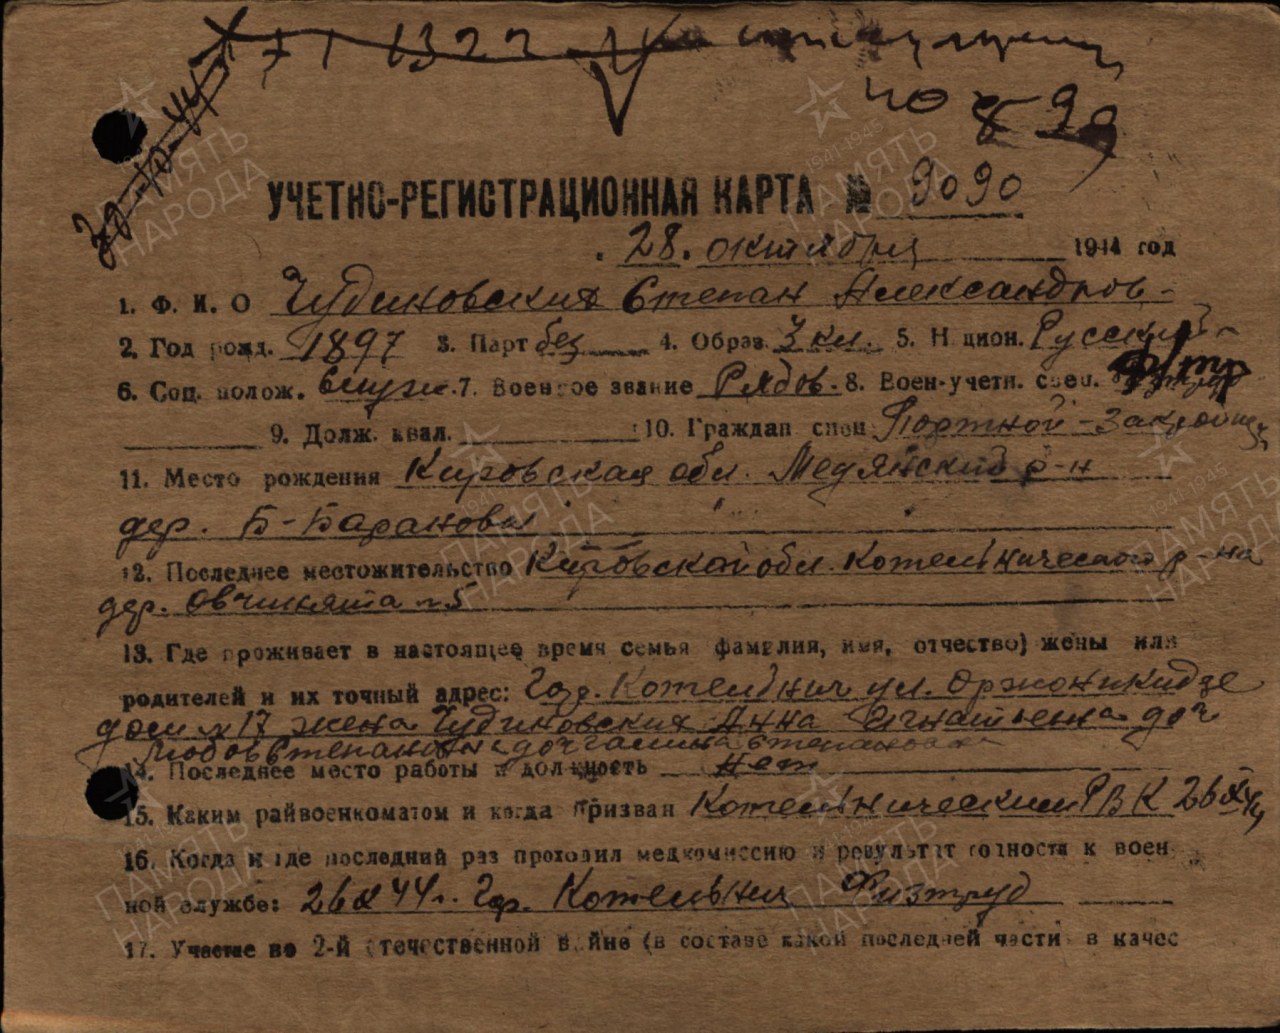 1322
40 8 99
УЧЕТНО-РЕГИСТРАЦИОННАЯ КАРТА № 9090
"28" октября 1944 год
1. Ф. И. О Чудиновских Степан Александров-
2. Год рожд. 1897 3. Парт без 4. Образ. 3 кл. 5. Национ. Русский
6. Соц. полож. служ. 7. Военное звание Рядов. 8. Воен-учетн. спец. ф/тр
9. Долж. квал. 10. Граждан спец Портной-Закройщ
11. Место рождения Кировская обл. Медянский р-н
дер. Б-Барановы
12. Последнее местожительство Кировской обл. Котельнического р-на
дер. Овчинята №5
13. Где проживает в настоящее время семья фамилия, имя, отчество) жены или
родителей и их точный адрес: Гор. Котельнич ул. Оржоникидзе
дом №17 жена Чудиновских Анна Игнатьевна доч
Любовь Степановна доч Галина Степановна
14. Последнее место работы и должность нет
15. Каким райвоенкоматом и когда призван Котельническим РВК 26 X 44
16. Когда и где последний раз проходил медкомиссию и результат годности к воен
ной службе: 26 X 44 г. Гор. Котельнич Физтруд
17. Участие во 2-й Отечественной войне (в составе какой последней части в качес
ПАМЯТЬ НАРОДА
1941-1945